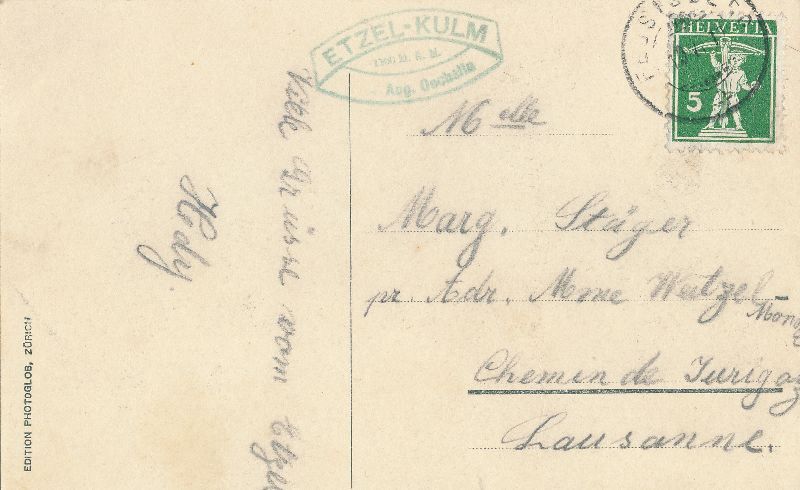 ETZEL-KULM
Aug. Oechslin
HELVETIA
5
Viele Grüsse vom Etzel
Hedy.
Mlle
Marg. Stäger
pr Adr. Mme Weitzel-
Chemin de
Lausanne.
EDITION PHOTOGLOB, ZÜRICH